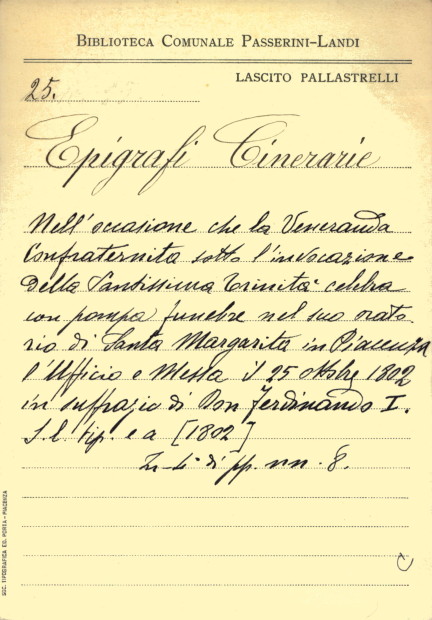 BIBLIOTECA COMUNALE PASSERINI-LANDI
LASCITO PALLASTRELLI
25.
Epigrafi Cinerarie
Nell'occasione che la Veneranda
Confraternita sotto l'invocazione
della Santissima Trinità celebra
con pompa funebre nel suo orato
rio di Santa Margarita in Piacenza
l'Ufficio e Messa il 25 ottobre 1802
in suffragio di Don Ferdinando I.
S. l. tip. e a [1802]
In-4° di pp. nn. 8.
SOC. TIPOGRAFICA ED. PORTA - PIACENZA